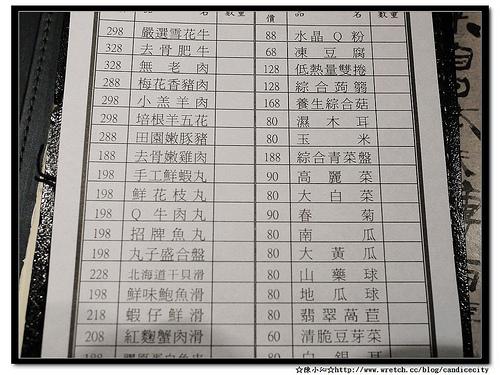 價 品 名 數量
298 嚴選雪花牛 88 水晶Q粉
328 去骨肥牛 68 凍豆腐
328 無老肉 128 低熱量雙捲
288 梅花香豬肉 128 綜合蒟蒻
298 小羔羊肉 168 養生綜合菇
298 培根羊五花 80 濕木耳
288 田園嫩豚豬 80 玉米
188 去骨嫩雞肉 188 綜合青菜盤
198 手工鮮蝦丸 90 高麗菜
198 鮮花枝丸 80 大白菜
198 Q牛肉丸 90 春菊
198 招牌魚丸 80 南瓜
198 丸子盛合盤 80 大黃瓜
228 北海道干貝滑 80 山藥球
198 鮮味鮑魚滑 80 地瓜球
218 蝦仔鮮滑 80 翡翠萵苣
208 紅麴蟹肉滑 60 清脆豆芽菜
188 膠原蛋白魚皮 80 白銀耳
☆陳小沁☆http://www.wretch.cc/blog/candicecity